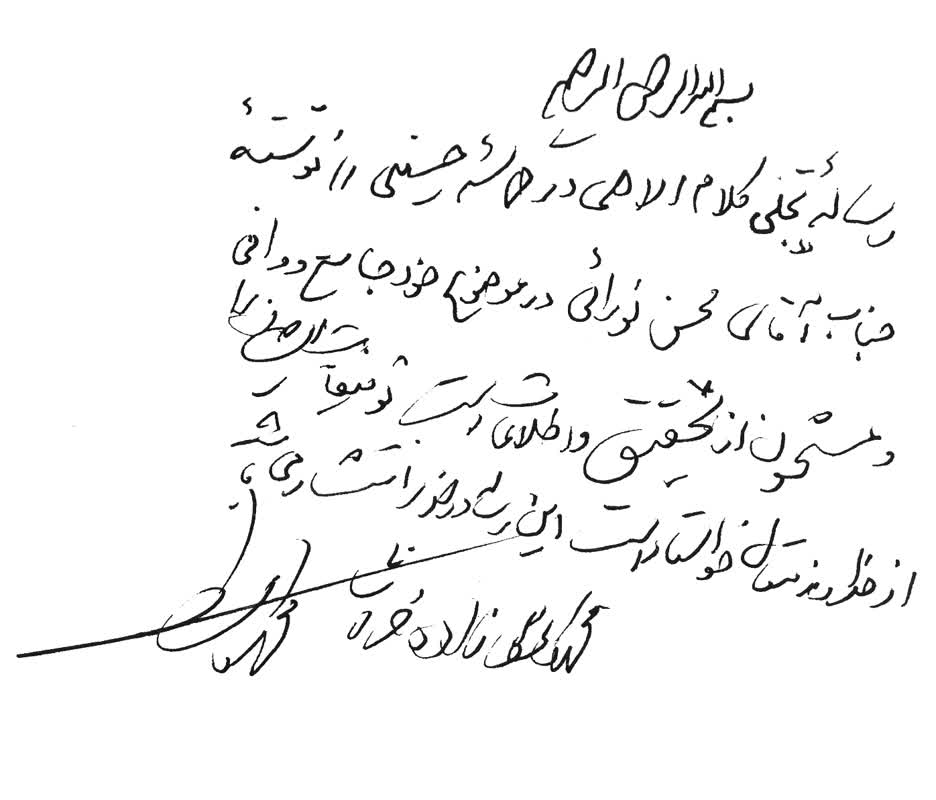 بسم الله الرحمن الرحیم
رسالهٔ تجلی کلام الاهی در حماسهٔ حسینی را نوشتهٔ
جناب آقای محسن نورائی در موضوع خود جامع و وافی
و مشحون از تحقیق و اطلاع است توفیقات ایشان را
از خداوند متعال خواستار است این رساله در خور انتشار می باشد
محمد علی زاده